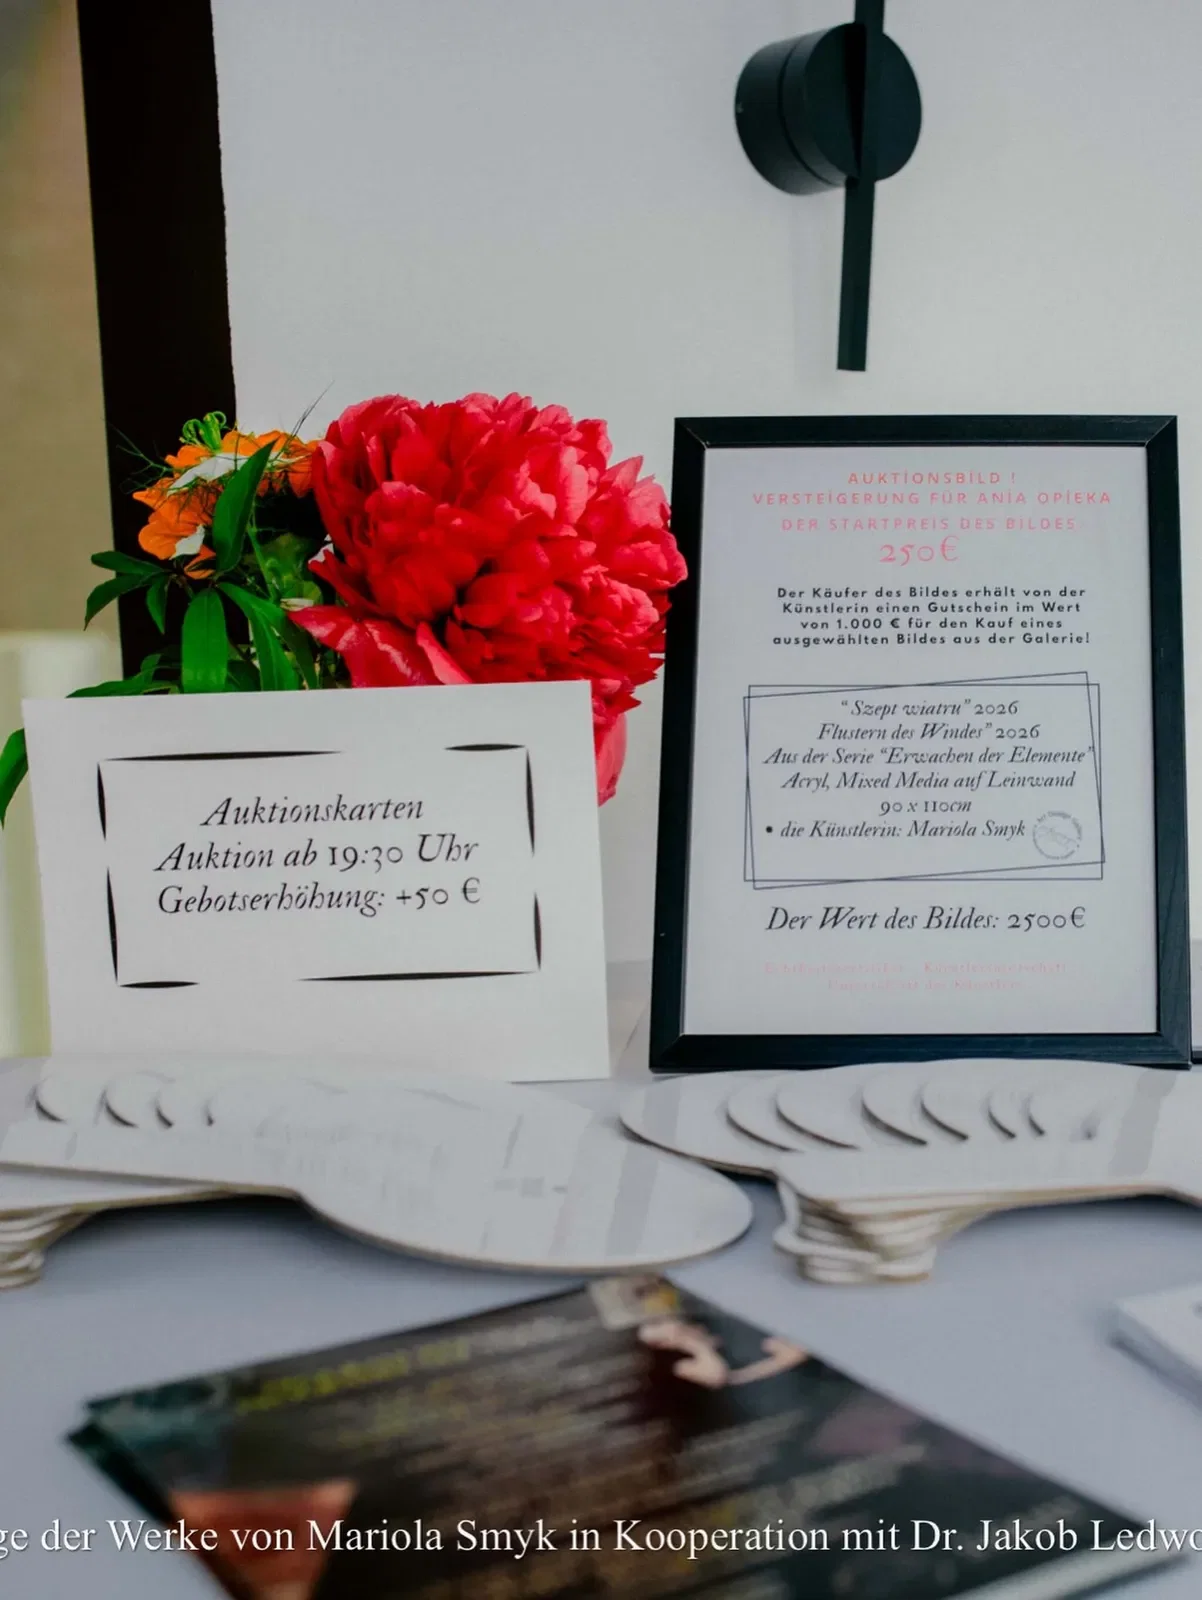 AUKTIONSBILD !
VERSTEIGERUNG FÜR ANIA OPIEKA
DER STARTPREIS DES BILDES
250€
Der Käufer des Bildes erhält von der
Künstlerin einen Gutschein im Wert
von 1.000 € für den Kauf eines
ausgewählten Bildes aus der Galerie!
“Szept wiatru” 2026
Flustern des Windes” 2026
Aus der Serie “Erwachen der Elemente”
Acryl, Mixed Media auf Leinwand
90 x 110cm
• die Künstlerin: Mariola Smyk
Der Wert des Bildes: 2500€
Auktionskarten
Auktion ab 19:30 Uhr
Gebotserhöhung: +50 €
ge der Werke von Mariola Smyk in Kooperation mit Dr. Jakob Ledwo